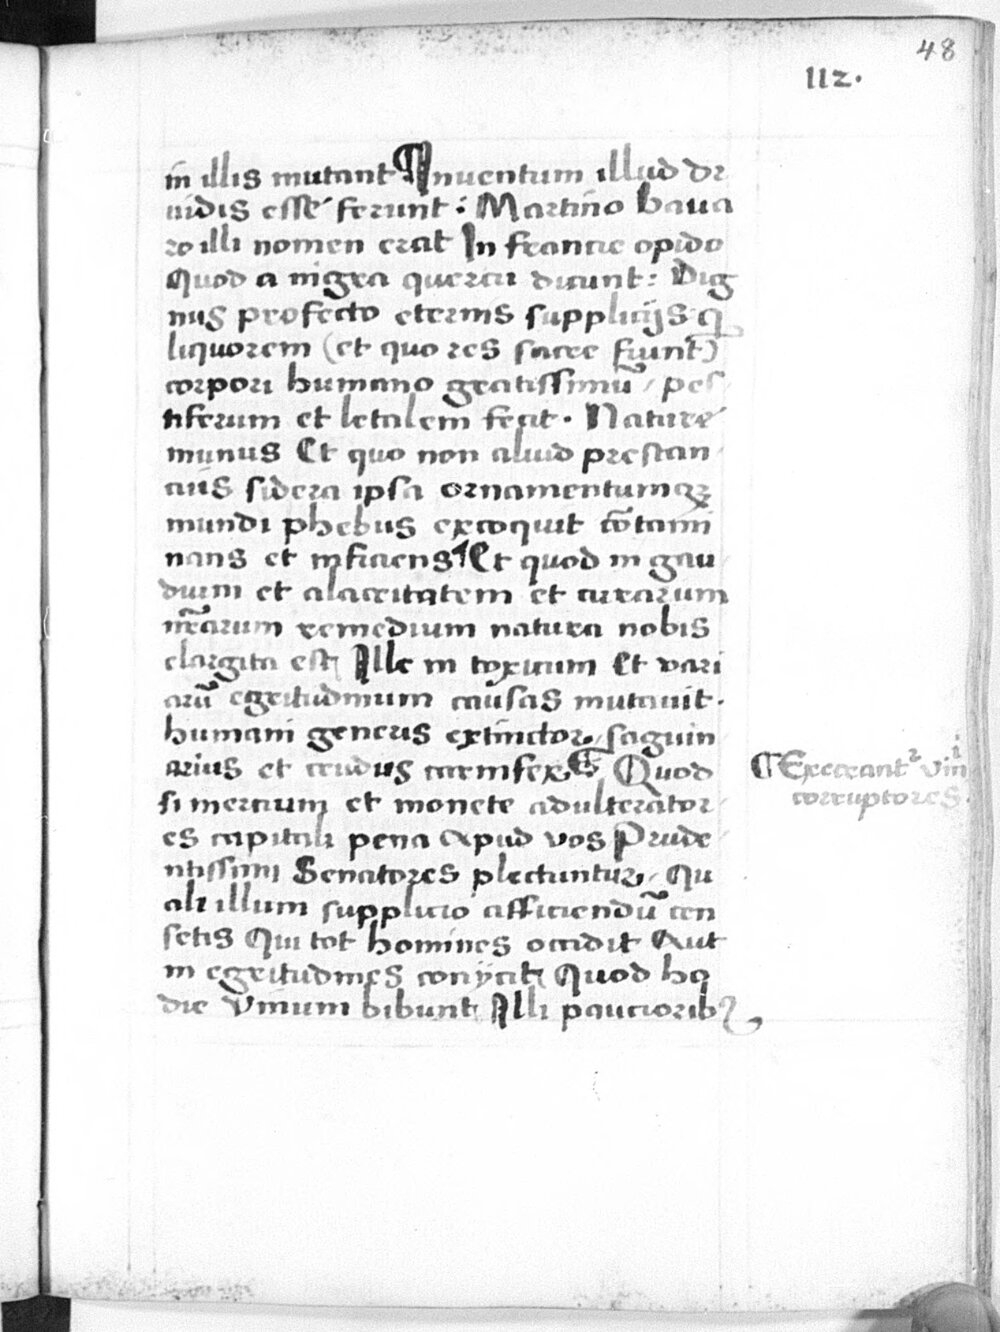 48
112.
in illis mutant ¶ Inuentum illud dr
uidis esse ferunt : Martino baua
ro illi nomen erat In francie opido
Quod a nigra quercu dicunt : Dig
nus profecto eternis supplicijs q
liquorem (et quo res sacre fiunt)
corpori humano gratissimū / pes
tiferum et letalem fecit . Nature
munus Et quo non aliud prestan
cius sidera ipsa ornamentumqꝫ
mundi phebus excoquit cōtami
nans et inficiens Et quod in gau
dium et alacritatem et curarum
nr̄arum remedium natura nobis
elargita est Ille in toxicum Et vari
arū egritudinum causas mutauit .
humani generis extinctor / saguin
arius et crudus carnifex ¶ Quod
si mercium et monete adulterator
es capitali pena Apud vos Prude
ntissimi Senatores plectuntur / Qu
ali illum supplicio afficiendū cen
setis Qui tot homines occidit Aut
in egritudines conijcit Quod ho
die Vinum bibunt Illi paucioribꝫ
¶ Execrant² vini
corruptores .